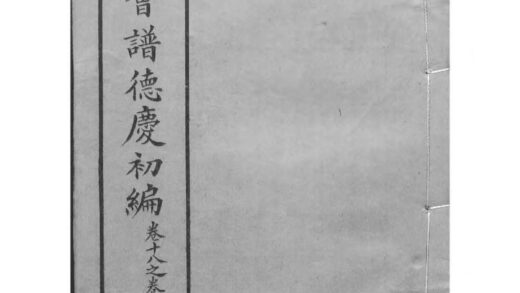 譜德慶初編
卷十八之卷